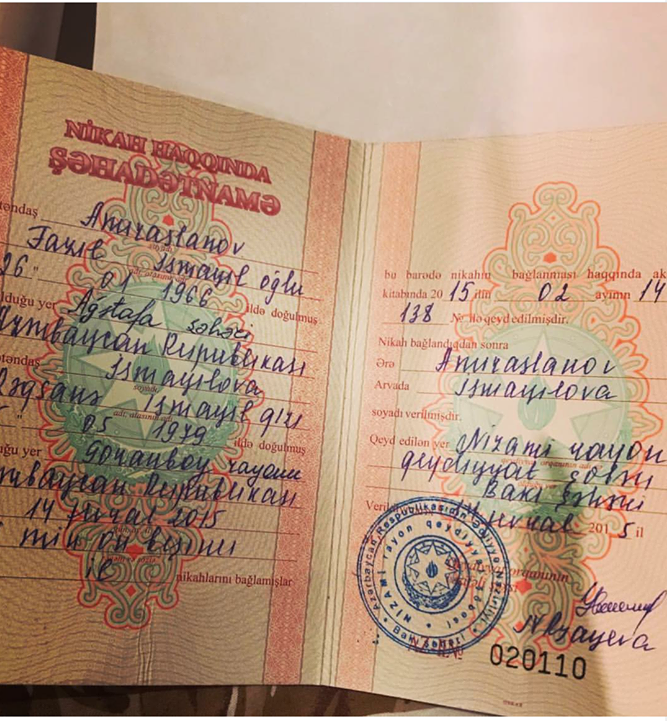 NİKAH HAQQINDA
ŞƏHADƏTNAMƏ
təndaş Amiraslanov
Fazil İsmayıl oğlu
26 " 01 1966 ildə doğulmuş
olduğu yer Ağstafa şəhəri
Azərbaycan Respublikası
təndaş İsmayılova
soyadı
İsmayıl qızı
adı, atasının adı
05 1979 ildə doğulmuş
duğu yer Goranboy rayonu
Azərbaycan Respublikası
14 fevral 2015
min on beşinci
il nikahlarını bağlamışlar
bu barədə nikahın bağlanması haqqında ak
kitabında 20 15 ilin 02 ayının 14
138 № ilə qeyd edilmişdir.
Nikah bağlandıqdan sonra
Ərə Amiraslanov
Arvada İsmayılova
soyadı verilmişdir.
Qeyd edilən yer Nizami rayon
qeydiyyat şöbəsi
Bakı şəhəri
fevral 201 5 il
Azərbaycan Respublikasının Ədliyyə Nazirliyi
NİZAMİ rayon qeydiyyat şöbəsi
Bakı şəhəri
№ 020110